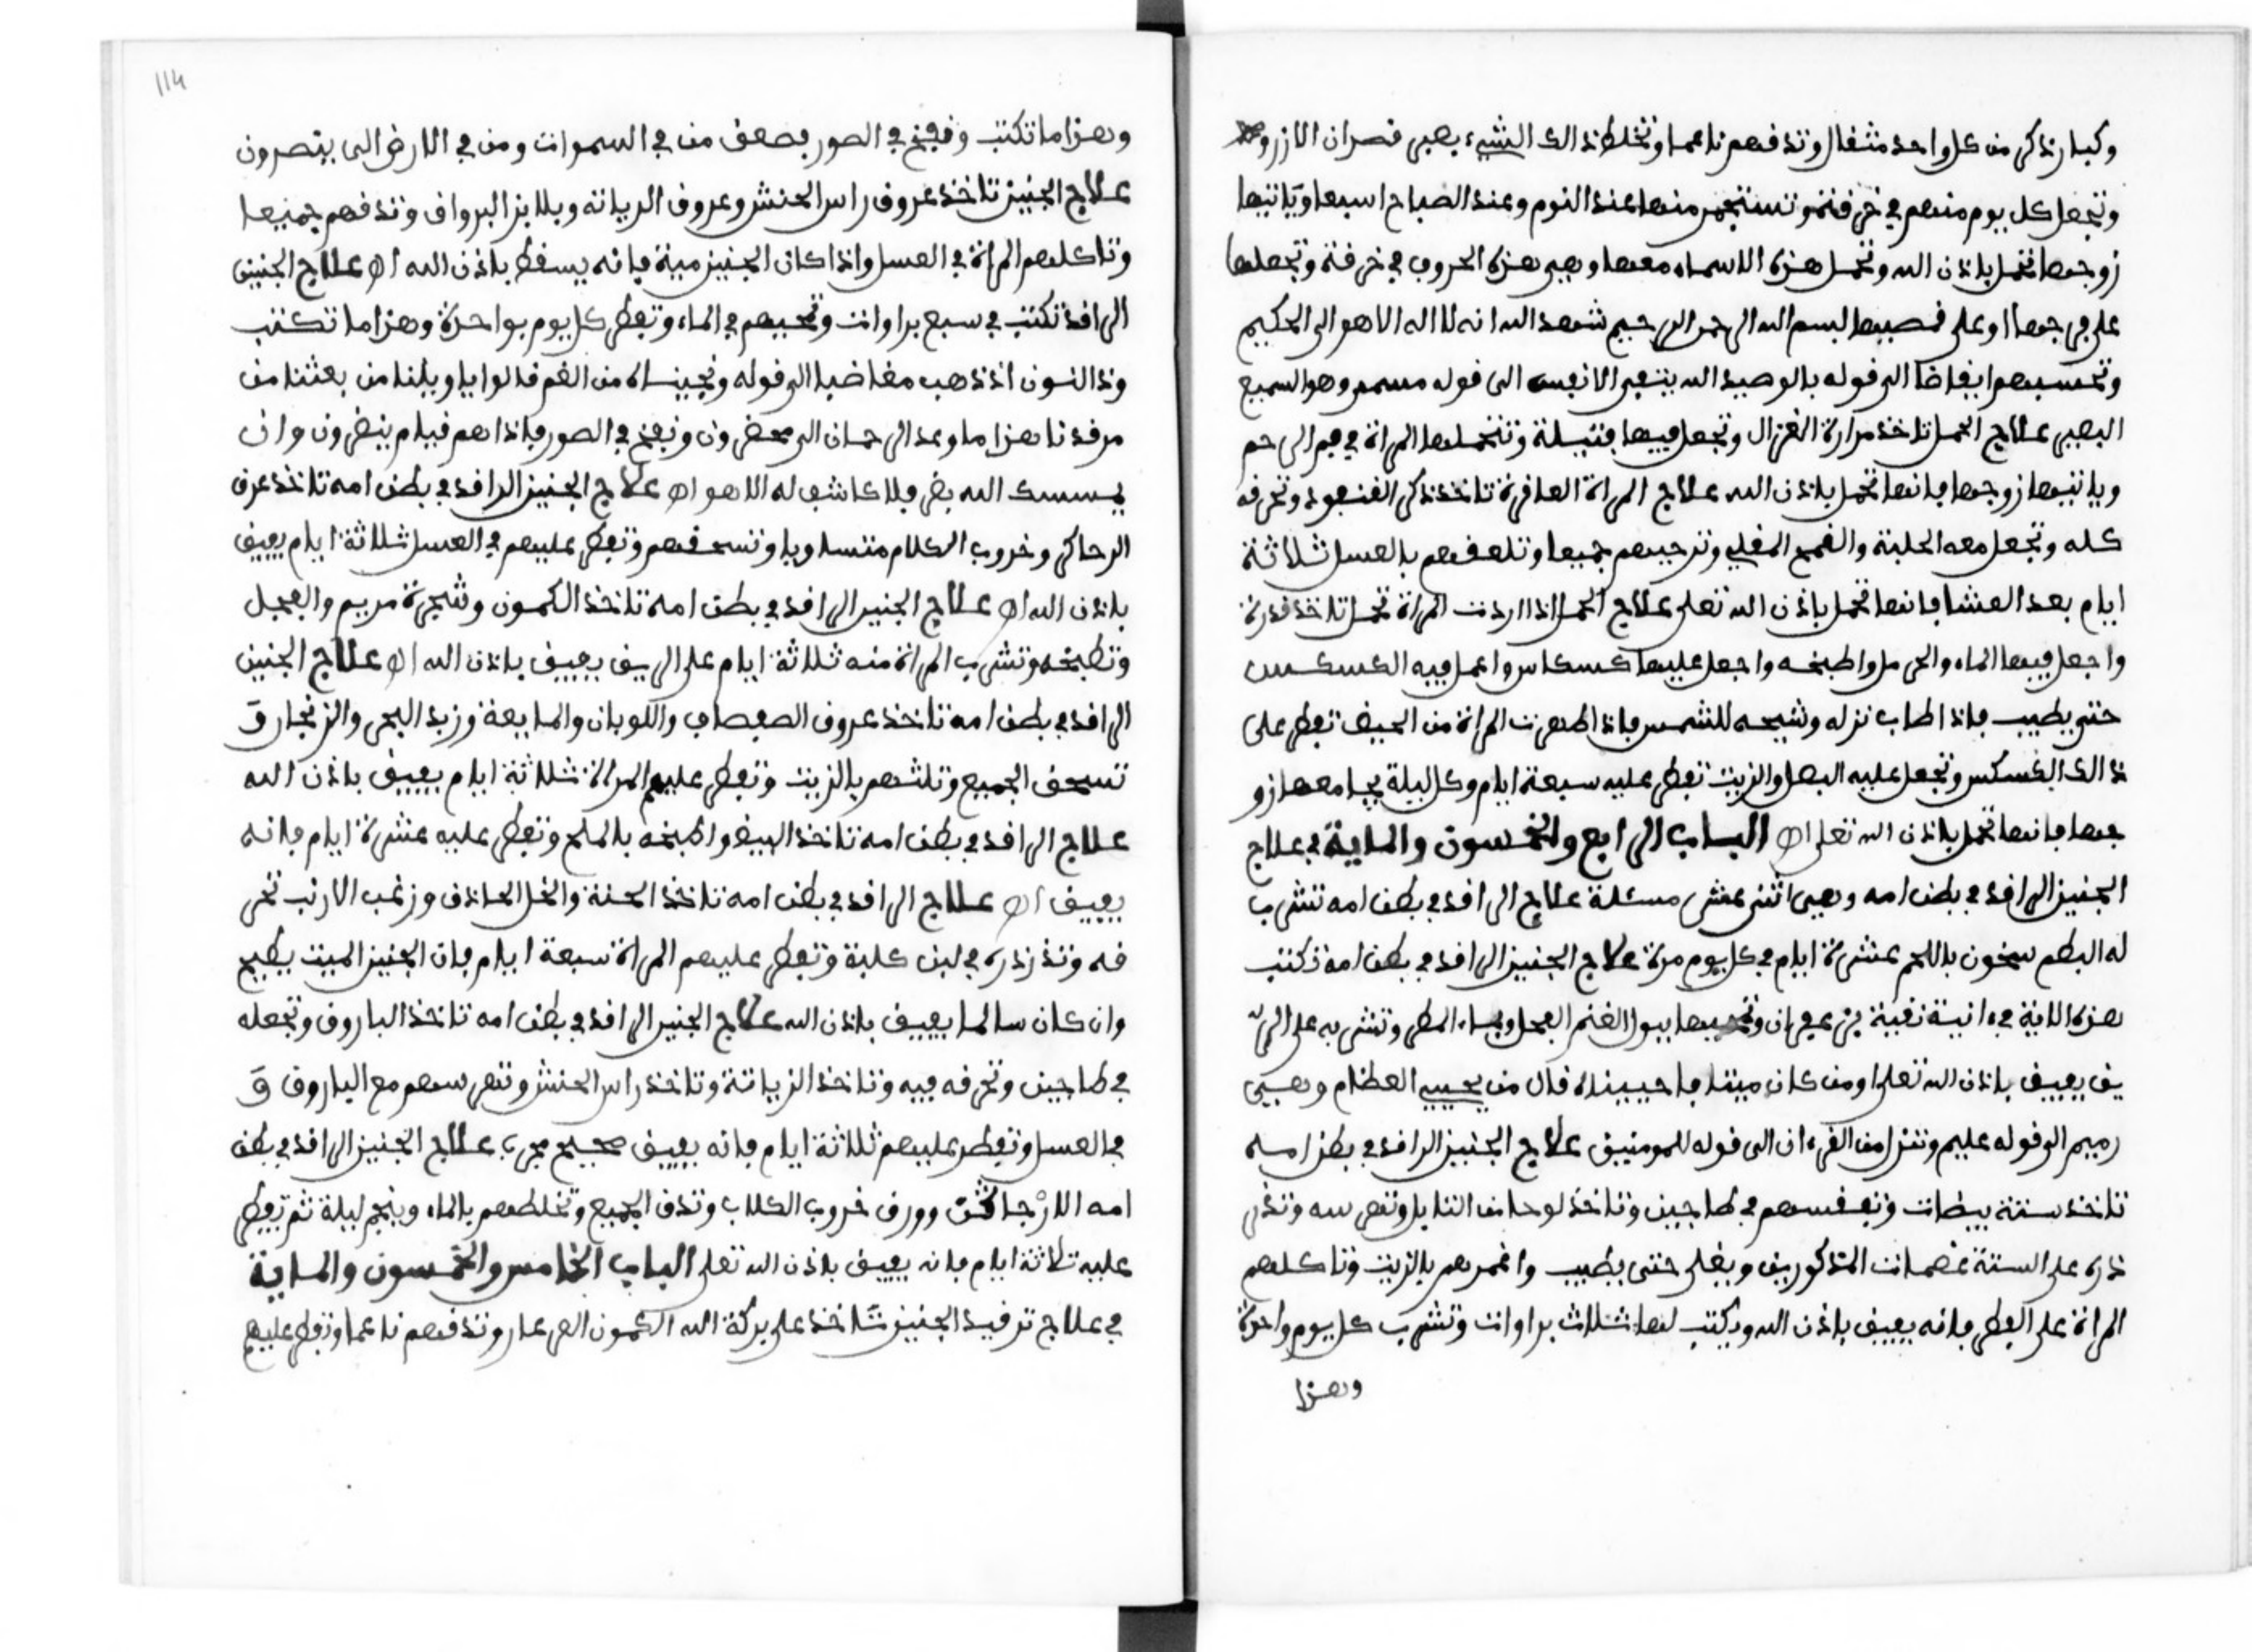 وكبار ذكر من كل واحد مثقال وتدقهم ناعما وتخلط ذالك الشيء بعبر قصران الازرو
وتجعل كل يوم منهم في خرقة وتستجمر منها عند النوم وعند الصباح اسبعا وياتيها
زوجها تحمل باذن الله وتحمل هذه الاسماء معها وهي هذه الحروف في خرقة وتجعلها
على فرجها او على قصبيها بسم الله الرحمن الرحيم شهد الله انه لا اله الا هو الى الحكيم
وتحسبهم ايقاضا الى قوله بالوصيد الله يتوفى الانفس الى قوله مسمى وهو السميع
البصير علاج الحمل تاخذ مرارة الغزال وتجعل فيها فتيلة وتتحملها المراة في فم الرحم
وياتيها زوجها فانها تحمل باذن الله علاج المراة العاقرة تاخذ ذكر القنفود وتحرقه
كله وتجعل معه الحلبة والقمح المقلي وترحيهم جميعا وتلعقهم بالعسل ثلاثة
ايام بعد العشا فانها تحمل باذن الله تعلى علاج الحمل اذا اردت المراة تحمل تاخذ قدرة
واجعل فيها الماء والحرمل واطبخه واجعل عليها كسكاس واعمل فيه الكسكس
حتى يطيب فاذا طاب نزله وشيحه للشمس فاذا طهرت المراة من الحيض تفطر على
ذالك الكسكس وتجعل عليه البصل والزيت تفطر عليه سبعة ايام وكل ليلة يجامعها زو
جها فانها تحمل باذن الله تعلى اه الباب الرابع والخمسون والماية في علاج
الجنين الراقد في بطن امه وهي اثنى عشر مسئلة علاج الراقد في بطن امه تشرب
له البطم سخون باللحم عشرة ايام في كل يوم مرة علاج الجنين الراقد في بطن امه تكتب
هذه الاية في ءانية نقية بزعفران وتمحيها ببول الغنم الفحل وبماء المطر وتشربه على الر
يق يفيق باذن الله تعلى او من كان ميتا فاحييناه قال من يحيي العظام وهي
رميم الى قوله عليم وننزل من القرءان الى قوله للمومنين علاج الجنين الراقد في بطن امه
تاخذ ستة بيضات وتفقسهم في طاجين وتاخذ لوحا من وتهرسه وتذر
ذره على الستة عضمات المذكورين ويغلى حتى يطيب واغمرهم بالزيت وتاكلهم
المراة على الفطر فانه يفيق باذن الله وتكتب لها ثلاث براوات وتشرب كل يوم واحدة
وهذا
114
وهذا ما تكتب ونفخ في الصور فصعق من في السموات ومن في الارض الى ينصرون
علاج الجنين تاخذ عروق راس الحنش وعروق الدريانة وبلابز البرواق وتدقهم جميعا
وتاكلهم المراة في العسل واذا كان الجنين ميتة فانه يسقط باذن الله اه علاج الجنين
الراقد تكتب في سبع براوات وتمحيهم في الماء وتفطر كل يوم بواحدة وهذا ما تكتب
وذا النون اذ ذهب مغاضبا الى قوله ونجيناه من الغم قالوا ياويلنا من بعثنا من
مرقدنا هذا ما وعد الرحمان الى محضرون ونفخ في الصور فاذا هم قيام ينضرون وان
يمسسك الله بضر فلا كاشف له الا هو اه علاج الجنين الراقد في بطن امه تاخذ عرق
الرحاكر وخروب الكلام متساويا وتسحقهم وتفطر عليهم في العسل ثلاثة ايام يفيق
باذن الله اه علاج الجنين الراقد في بطن امه تاخذ الكمون وشجرة مريم والفجل
وتطبخه وتشرب المراة منه ثلاثة ايام على الريق يفيق باذن الله اه علاج الجنين
الراقد في بطن امه تاخذ عروق الصفصاف واللوبان والمايعة وزبد البحر والزنجار و
تسحق الجميع وتلثهم بالزيت وتفطر عليهم المراة ثلاثة ايام يفيق باذن الله
علاج الراقد في بطن امه تاخذ البيض واطبخه بالملح وتفطر عليه عشرة ايام فانه
يفيق اه علاج الراقد في بطن امه تاخذ الحنة والخل الحاذق وزغب الارنب تحر
قه وتذرذره في لبن كلبة وتفطر عليهم المراة سبعة ايام فان الجنين الميت يطيح
وان كان سالما يفيق باذن الله علاج الجنين الراقد في بطن امه تاخذ الباروق وتجعله
في طاجين وتحرقه فيه وتاخذ الزياتة وتاخذ راس الحنش وتهرسهم مع الباروق و
في العسل وتفطر عليهم ثلاثة ايام فانه يفيق صحيح مجرب علاج الجنين الراقد في بطن
امه وورق خروب الكلاب وتدق الجميع وتخلطهم بالماء وينجم ليلة ثم تفطر
عليه ثلاثة ايام فانه يفيق باذن الله تعلى الباب الخامس والخمسون والماية
في علاج ترقيد الجنين تاخذ على بركة الله الكمون العرعار وتدقهم ناعما وتفطر عليهم